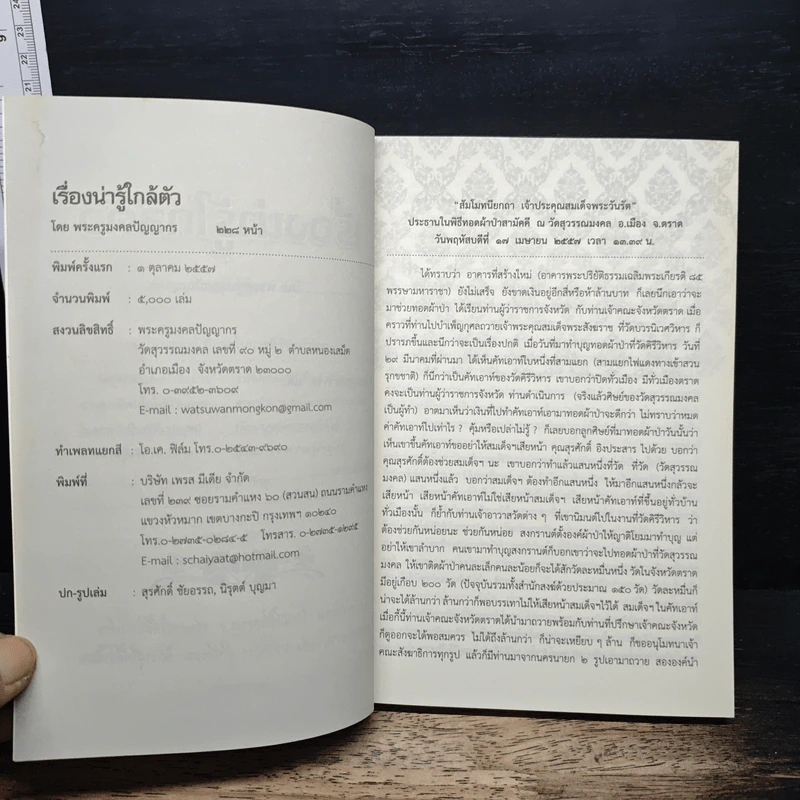 เรื่องน่ารู้ใกล้ตัว
โดย พระครูมงคลปัญญากร ๒๒๘ หน้า
พิมพ์ครั้งแรก : ๑ ตุลาคม ๒๕๕๗
จำนวนพิมพ์ : ๕,๐๐๐ เล่ม
สงวนลิขสิทธิ์ : พระครูมงคลปัญญากร
วัดสุวรรณมงคล เลขที่ ๙๐ หมู่ ๒ ตำบลหนองเสม็ด
อำเภอเมือง จังหวัดตราด ๒๓๐๐๐
โทร. ๐-๓๙๕๒-๓๖๐๙
E-mail : watsuwanmongkon@gmail.com
ทำเพลทแยกสี : โอ.เค. ฟิล์ม โทร.๐-๒๕๔๓-๙๖๙๐
พิมพ์ที่ : บริษัท เพรส มีเดีย จำกัด
เลขที่ ๒๓๙ ซอยรามคำแหง ๖๐ (สวนสน) ถนนรามคำแหง
แขวงหัวหมาก เขตบางกะปิ กรุงเทพฯ ๑๐๒๔๐
โทร.๐-๒๗๓๕-๐๒๘๔-๕ โทรสาร. ๐-๒๗๓๕-๑๒๙๕
E-mail : schaiyaat@hotmail.com
ปก-รูปเล่ม : สุรศักดิ์ ชัยอรรถ, นิรุตต์ บุญมา
"สัมโมทนียกถา เจ้าประคุณสมเด็จพระวันรัต"
ประธานในพิธีทอดผ้าป่าสามัคคี ณ วัดสุวรรณมงคล อ.เมือง จ.ตราด
วันพฤหัสบดีที่ ๑๗ เมษายน ๒๕๕๗ เวลา ๑๓.๓๙ น.
ได้ทราบว่า อาคารที่สร้างใหม่ (อาคารพระปริยัติธรรมเฉลิมพระเกียรติ ๘๕
พรรษามหาราชา) ยังไม่เสร็จ ยังขาดเงินอยู่อีกสี่หรือห้าล้านบาท ก็เลยนึกเอาว่าจะ
มาช่วยทอดผ้าป่า ได้เรียนท่านผู้ว่าราชการจังหวัด กับท่านเจ้าคณะจังหวัดตราด เมื่อ
คราวที่ท่านไปบำเพ็ญกุศลถวายเจ้าพระคุณสมเด็จพระสังฆราช ที่วัดบวรนิเวศวิหาร ก็
ปรารภขึ้นและนึกว่าจะเป็นเรื่องปกติ เมื่อวันที่มาทำบุญทอดผ้าป่าที่วัดคิรีวิหาร วัน
ที่ ๒๙ มีนาคมที่ผ่านมา ได้เห็นคัทเอาท์ใบหนึ่งที่สามแยก (สามแยกไฟแดงทางเข้าสวน
รุกขชาติ) ก็นึกว่าเป็นคัทเอาท์ของวัดคิรีวิหาร เขาบอกว่าปิดทั่วเมือง มีทั่วเมืองตราด
คงจะเป็นท่านผู้ว่าราชการจังหวัด ท่านดำเนินการ (จริงแล้วศิษย์ของวัดสุวรรณมงคล
เป็นผู้ทำ) อาตมาเห็นว่าเงินที่ไปทำคัทเอาท์เอามาทอดผ้าป่าจะดีกว่า ไม่ทราบว่าหมด
ค่าคัทเอาท์ไปเท่าไร ? คุ้มหรือเปล่าไม่รู้ ? ก็เลยบอกลูกศิษย์ที่มาทอดผ้าป่าวันนั้นว่า
เห็นเขาขึ้นคัทเอาท์ขออย่าให้สมเด็จฯเสียหน้า คุณสุรศักดิ์ อิงประสาร ไปด้วย บอกว่า
คุณสุรศักดิ์ต้องช่วยสมเด็จฯ นะ เขาบอกว่าทำแล้วแสนหนึ่งที่วัด ที่วัด (วัดสุวรรณ
มงคล) แสนหนึ่งแล้ว บอกว่าแสนไม่พอดอก ต้องทำอีกแสนหนึ่ง ให้มาอีกแสนหนึ่งกลัวจะ
เสียหน้า เสียหน้าคัทเอาท์ไม่ใช่เสียหน้าสมเด็จฯ เสียหน้าคัทเอาท์ที่ขึ้นอยู่ทั่วบ้าน
ทั่วเมืองนั้น ก็ย้ำกับท่านเจ้าอาวาสวัดต่าง ๆ ที่เขานิมนต์ไปในงานที่วัดคิรีวิหาร ว่า
ต้องช่วยกันหน่อยนะ ช่วยกันหน่อย สงกรานต์ตั้งองค์ผ้าป่าให้ญาติโยมมาทำบุญ แต่
อย่าให้เขาลำบาก คนเขามาทำบุญสงกรานต์ก็บอกเขาว่าจะไปทอดผ้าป่าที่วัดสุวรรณ
มงคล ให้เขาติดผ้าป่าคนละเล็กคนละน้อยก็จะได้สักวัดละหมื่นหนึ่ง วัดในจังหวัดตราด
มีอยู่เกือบ ๒๐๐ วัด (ปัจจุบันรวมทั้งสำนักสงฆ์ด้วยประมาณ ๑๕๐ วัด) วัดละหมื่นก็
น่าจะได้ล้านกว่า ล้านกว่าก็พอบรรเทาไม่ให้เสียหน้าสมเด็จฯไว้ได้ สมเด็จฯ ในคัทเอาท์
เมื่อกี้นี้ท่านเจ้าคณะจังหวัดตราดได้นำมาถวายพร้อมกับท่านที่ปรึกษาเจ้าคณะจังหวัด
ก็ดูออกจะได้พอสมควร ไม่ได้ถึงล้านกว่า ก็น่าจะเหยียบ ๆ ล้าน ก็ขออนุโมทนาเจ้า
คณะสังฆาธิการทุกรูป แล้วก็มีท่านมาจากนครนายก ๒ รูปเอามาถวาย สององค์นำ